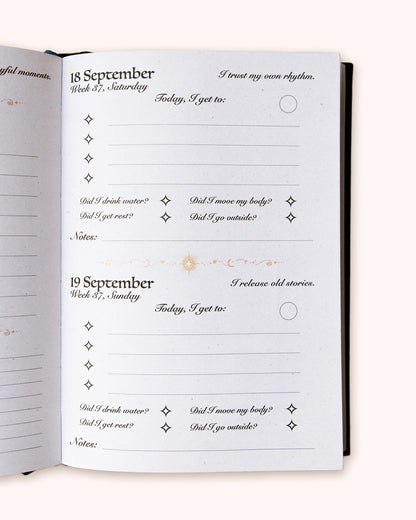 yful moments.
18 September
I trust my own rhythm.
Week 37, Saturday
Today, I get to:
Did I drink water? Did I move my body?
Did I get rest? Did I go outside?
Notes:
19 September
I release old stories.
Week 37, Sunday
Today, I get to:
Did I drink water? Did I move my body?
Did I get rest? Did I go outside?
Notes: